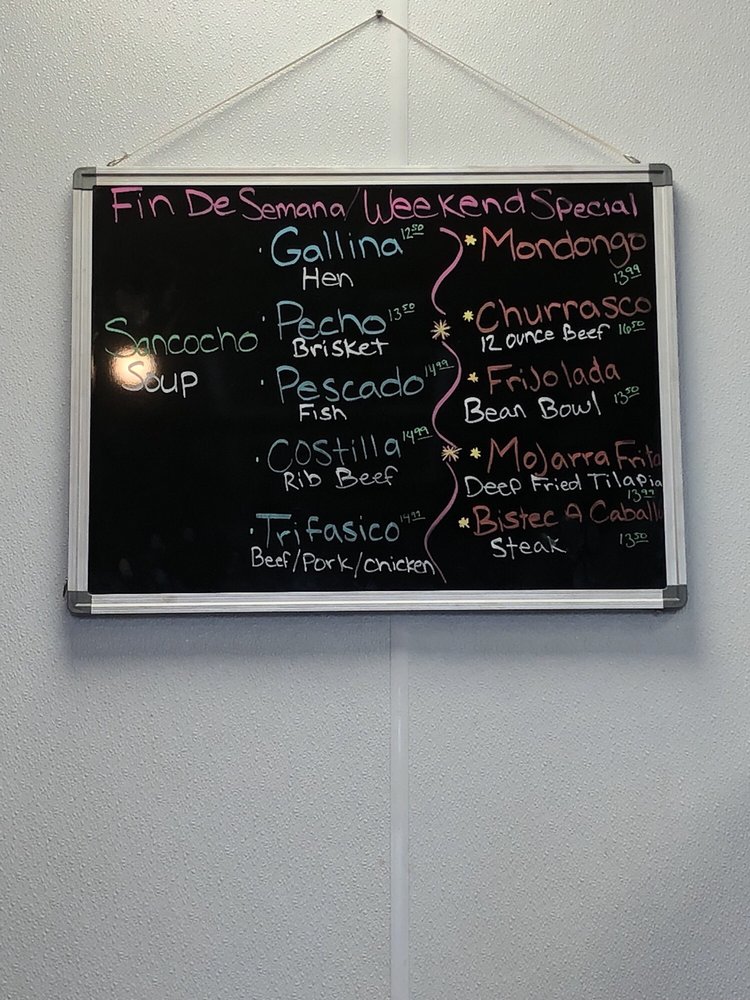 Fin De Semana/Weekend Special
Sancocho
Soup
Gallina 12.50
Hen
Pecho 13.50
Brisket
Pescado 14.99
Fish
Costilla 14.99
Rib Beef
Trifasico 14.99
Beef/Pork/chicken
Mondongo
13.99
Churrasco
12 ounce Beef 16.50
Frijolada
Bean Bowl 13.50
Mojarra Frita
Deep Fried Tilapia
13.99
Bistec A Caball
Steak 13.50